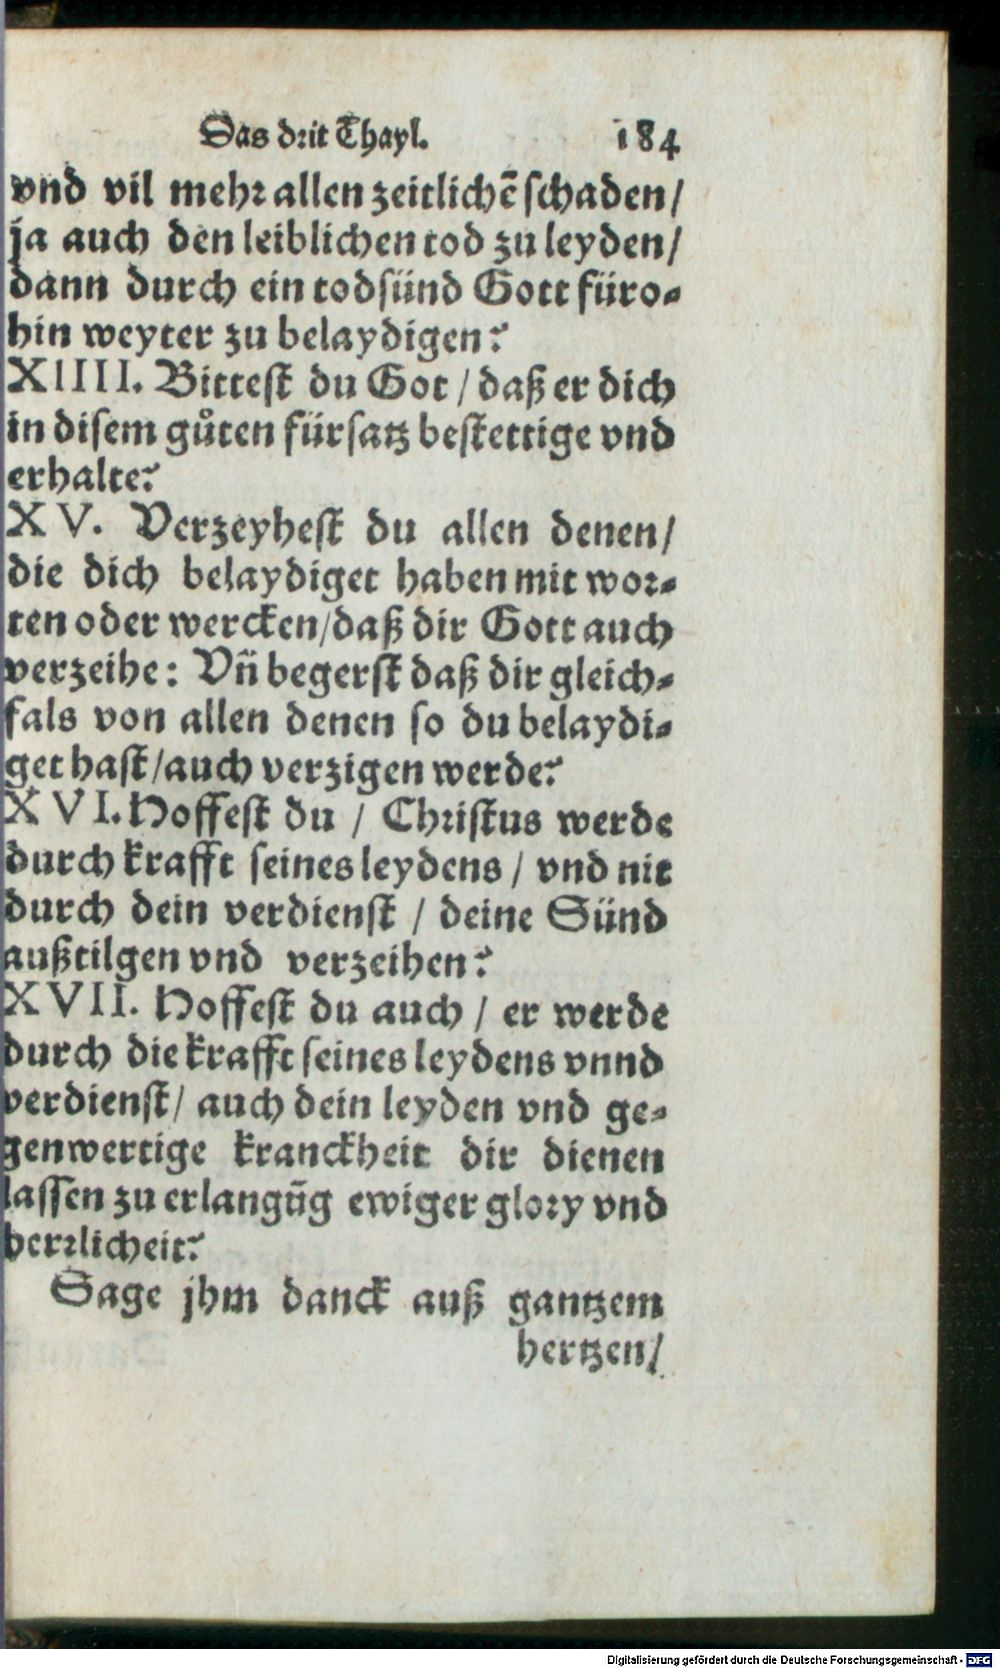 Das drit Thayl. 184
vnd vil mehr allen zeitlichē schaden/
ja auch den leiblichen tod zu leyden/
dann durch ein todsünd Gott füro-
hin weyter zu belaydigen?
XIIII. Bittest du Got / daß er dich
in disem gůten fürsatz bestettige vnd
erhalte?
XV. Verzeyhest du allen denen/
die dich belaydiget haben mit wor-
ten oder wercken/daß dir Gott auch
verzeihe: Vñ begerst daß dir gleich-
fals von allen denen so du belaydi-
get hast/auch verzigen werde?
XVI. Hoffest du / Christus werde
durch krafft seines leydens / vnd nit
durch dein verdienst / deine Sünd
außtilgen vnd verzeihen?
XVII. Hoffest du auch / er werde
durch die krafft seines leydens vnnd
verdienst/ auch dein leyden vnd ge-
genwertige kranckheit dir dienen
lassen zu erlangūg ewiger glory vnd
herrlicheit?
Sage jhm danck auß gantzem
hertzen/
Digitalisierung gefördert durch die Deutsche Forschungsgemeinschaft - DFG